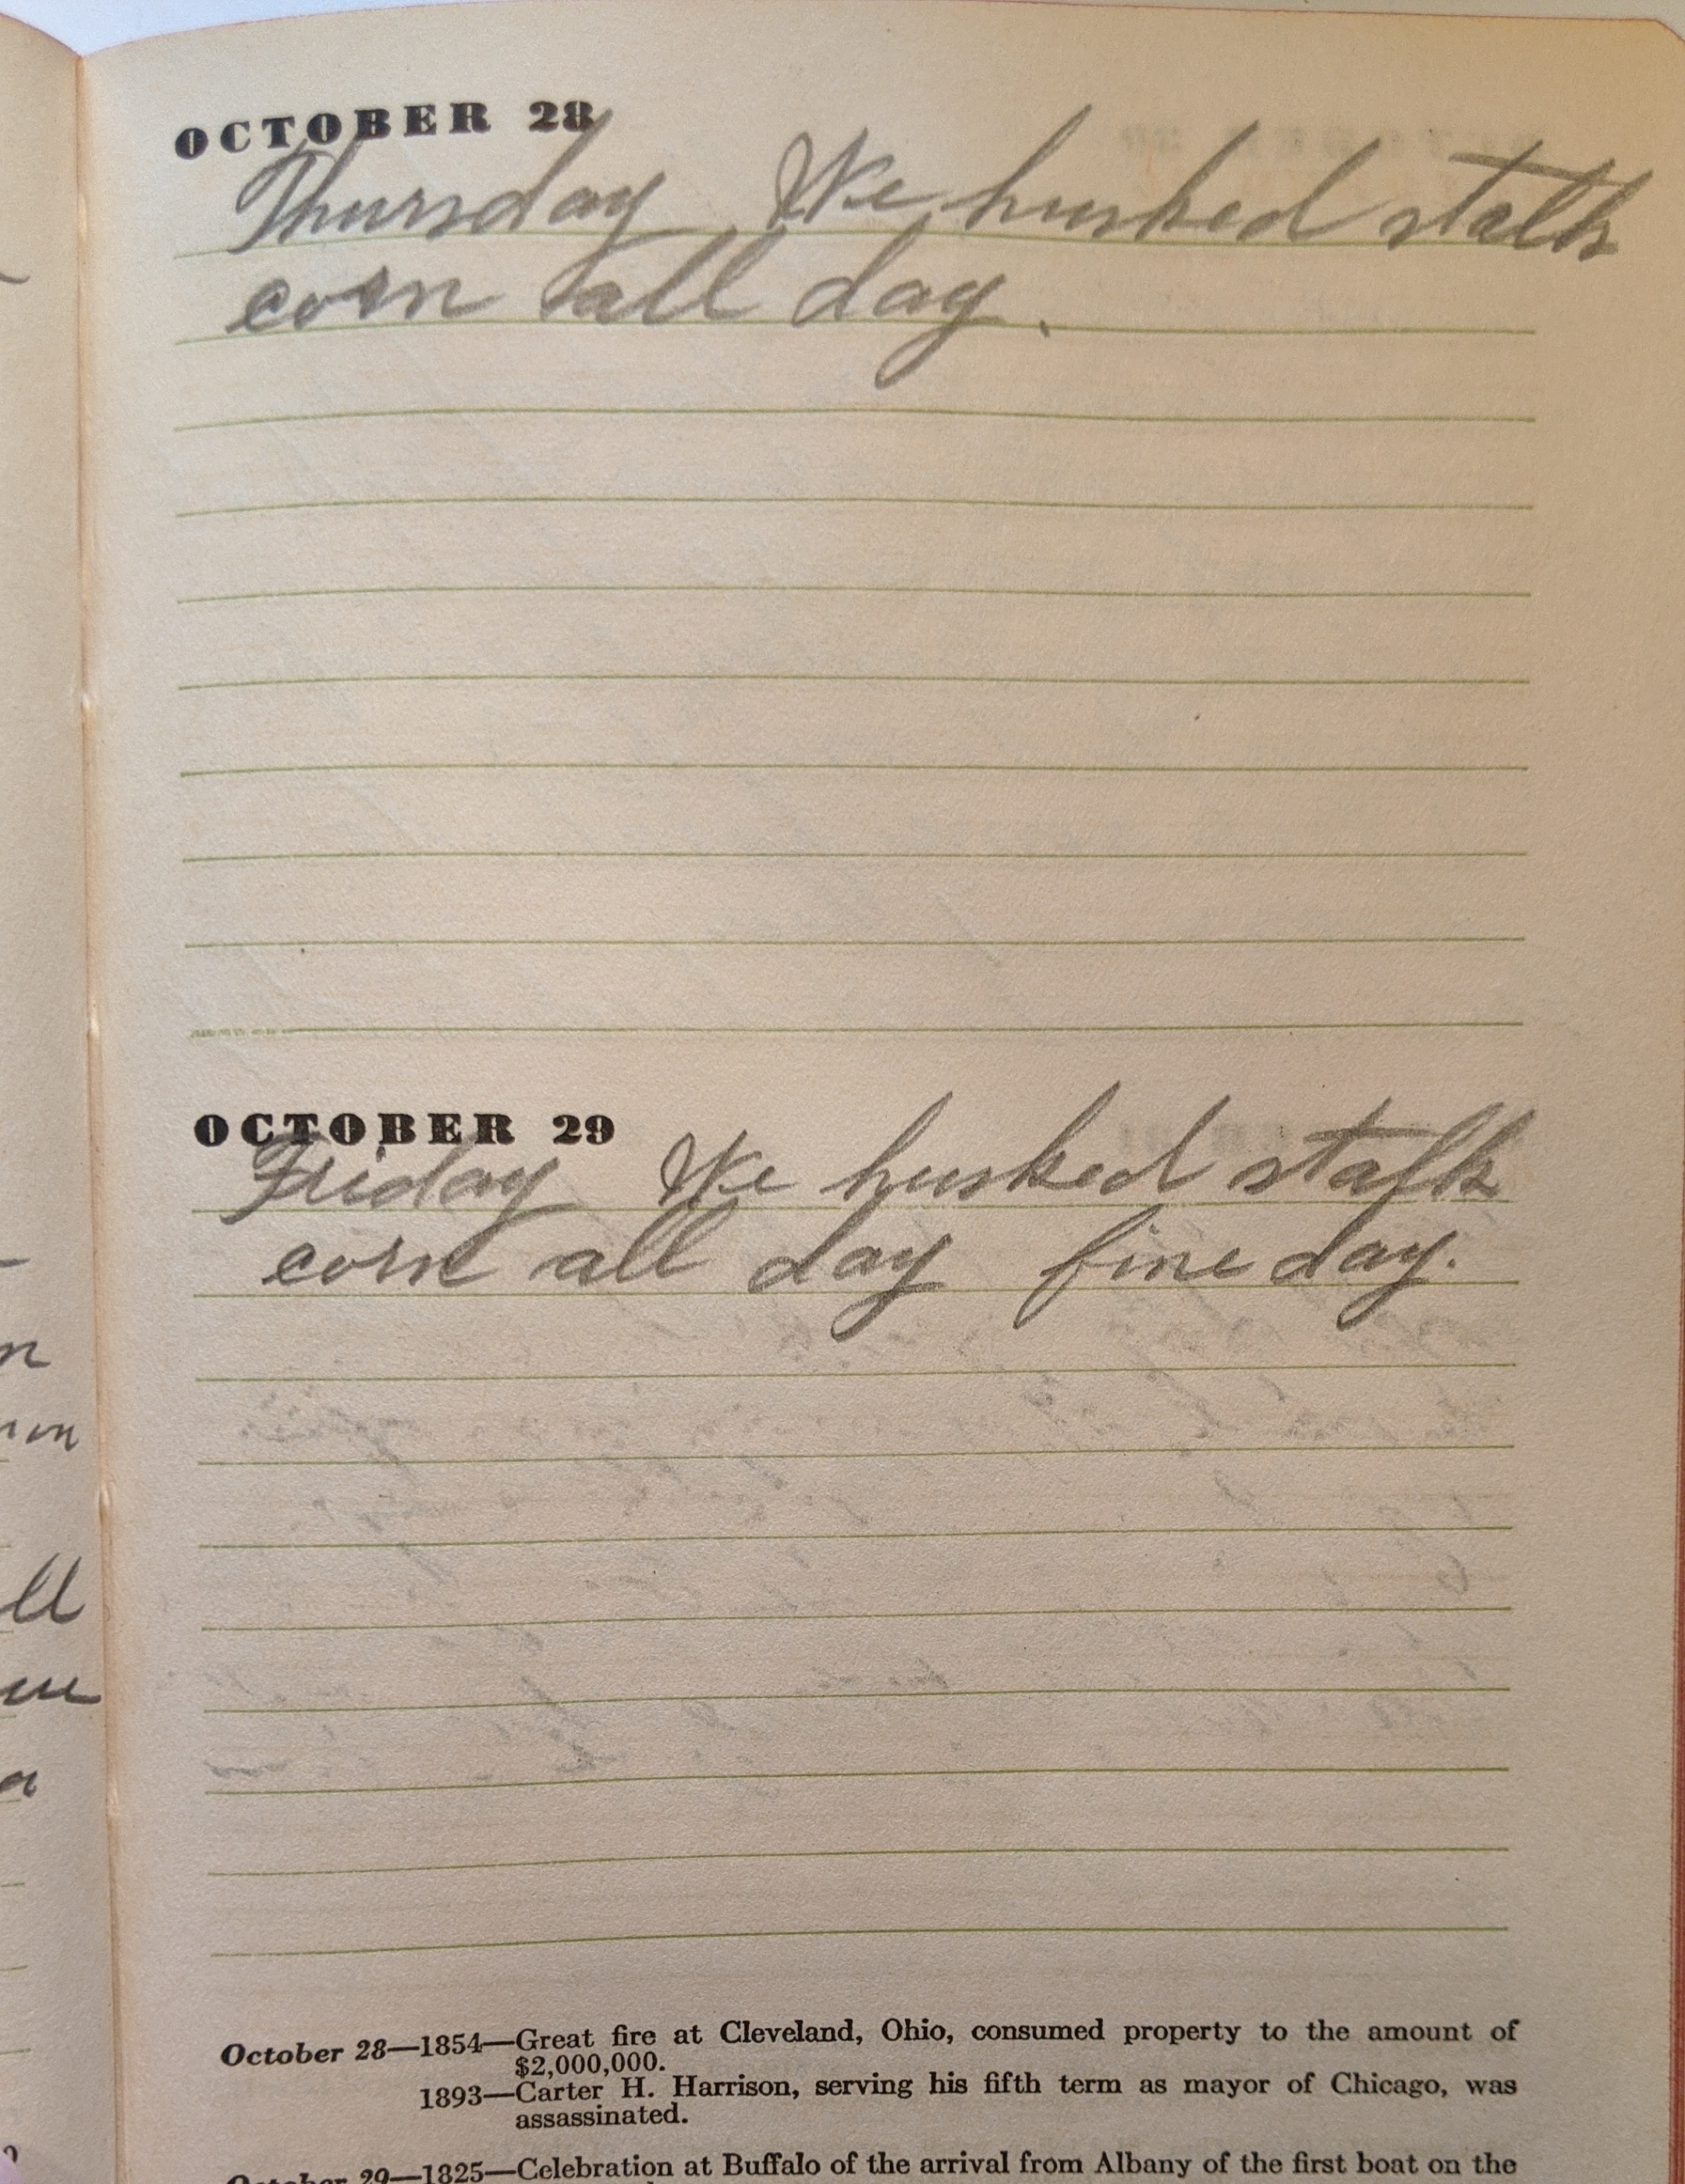 OCTOBER 28
Thursday We husked stalk
corn all day.
OCTOBER 29
Friday We husked stalk
corn all day fine day.
October 28—1854—Great fire at Cleveland, Ohio, consumed property to the amount of
$2,000,000.
1893—Carter H. Harrison, serving his fifth term as mayor of Chicago, was
assassinated.
October 29—1825—Celebration at Buffalo of the arrival from Albany of the first boat on the